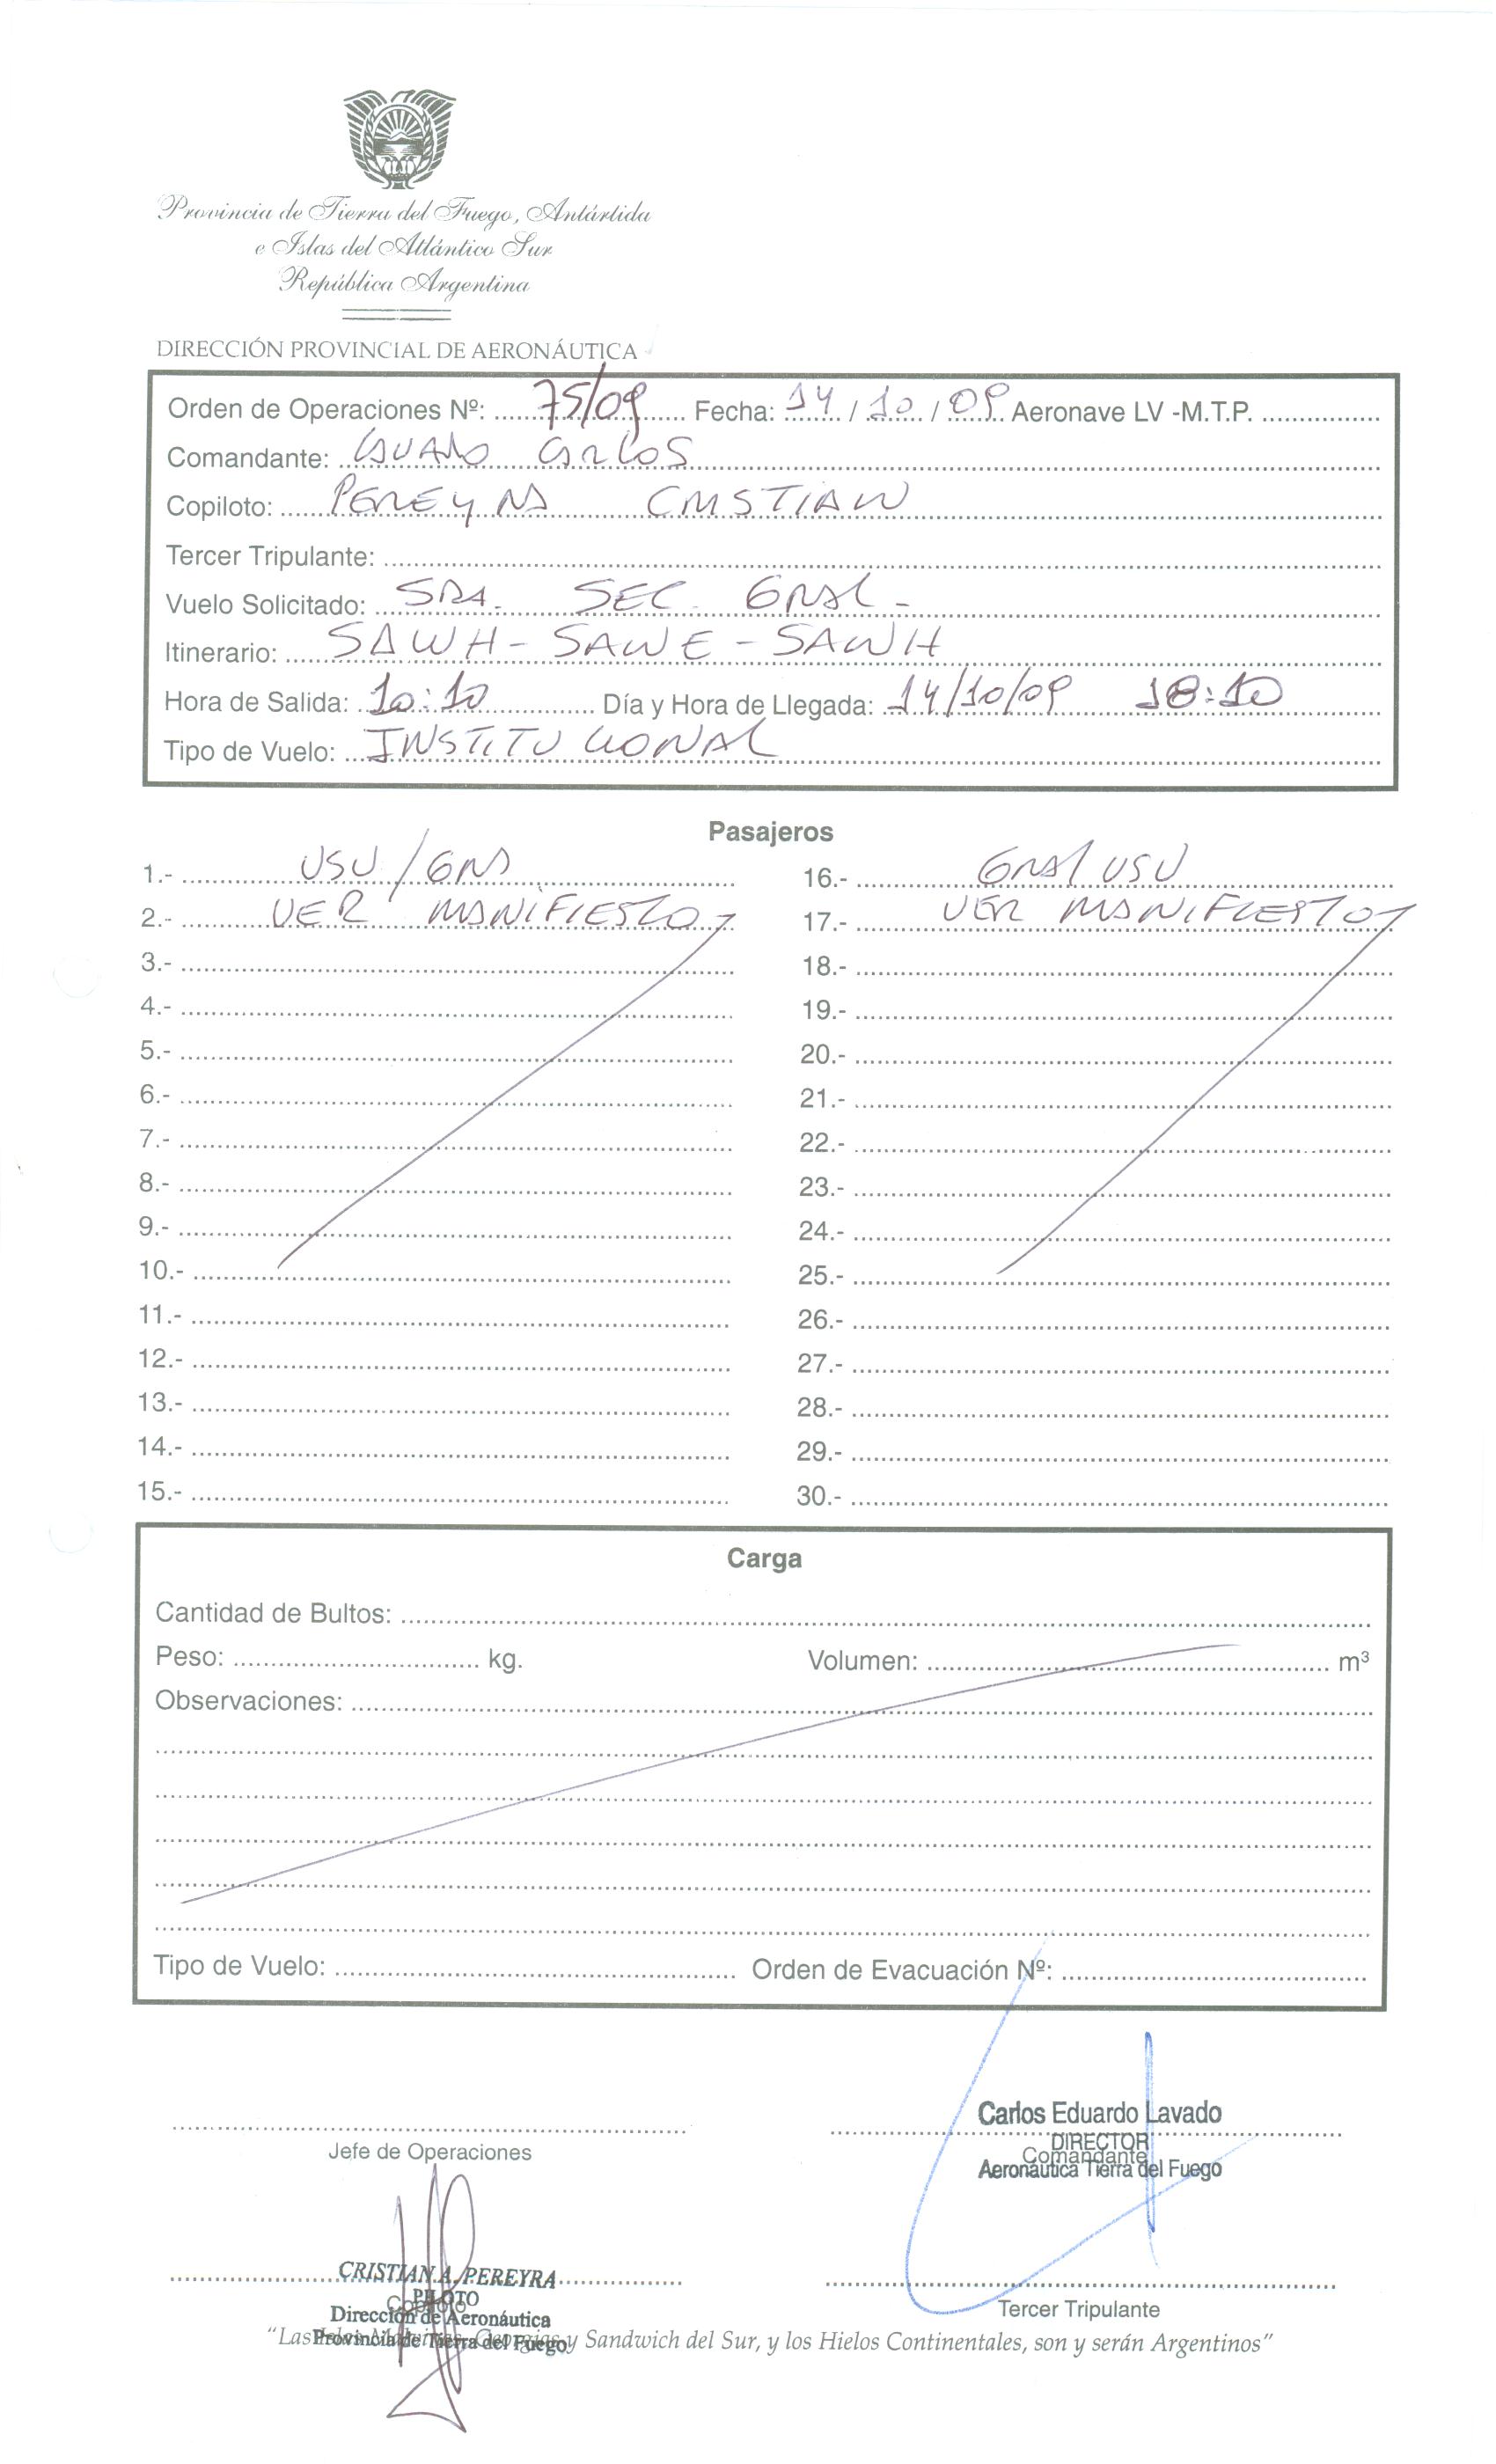 Provincia de Tierra del Fuego, Antártida
e Islas del Atlántico Sur
República Argentina
DIRECCIÓN PROVINCIAL DE AERONÁUTICA
Orden de Operaciones Nº: 75/09 Fecha: 14 / 10 / 09 Aeronave LV -M.T.P.
Comandante: LAVADO CARLOS
Copiloto: PEREYRA CRISTIAN
Tercer Tripulante:
Vuelo Solicitado: SRA. SEC. GRAL.
Itinerario: SAWH - SAWE - SAWH
Hora de Salida: 10:10 Día y Hora de Llegada: 14/10/09 18:10
Tipo de Vuelo: INSTITUCIONAL
Pasajeros
1.- USU/GRA 16.- GRA/USU
2.- VER MANIFIESTO 17.- VER MANIFIESTO
3.- 18.-
4.- 19.-
5.- 20.-
6.- 21.-
7.- 22.-
8.- 23.-
9.- 24.-
10.- 25.-
11.- 26.-
12.- 27.-
13.- 28.-
14.- 29.-
15.- 30.-
Carga
Cantidad de Bultos:
Peso: kg. Volumen: m³
Observaciones:
Tipo de Vuelo: Orden de Evacuación Nº:
Carlos Eduardo Lavado
DIRECTOR
Jefe de Operaciones Comandante
Aeronáutica Tierra del Fuego
CRISTIAN A. PEREYRA
PILOTO
Copiloto Tercer Tripulante
Dirección de Aeronáutica
Provincia de Tierra del Fuego
"Las Islas Malvinas, Georgias y Sandwich del Sur, y los Hielos Continentales, son y serán Argentinos"